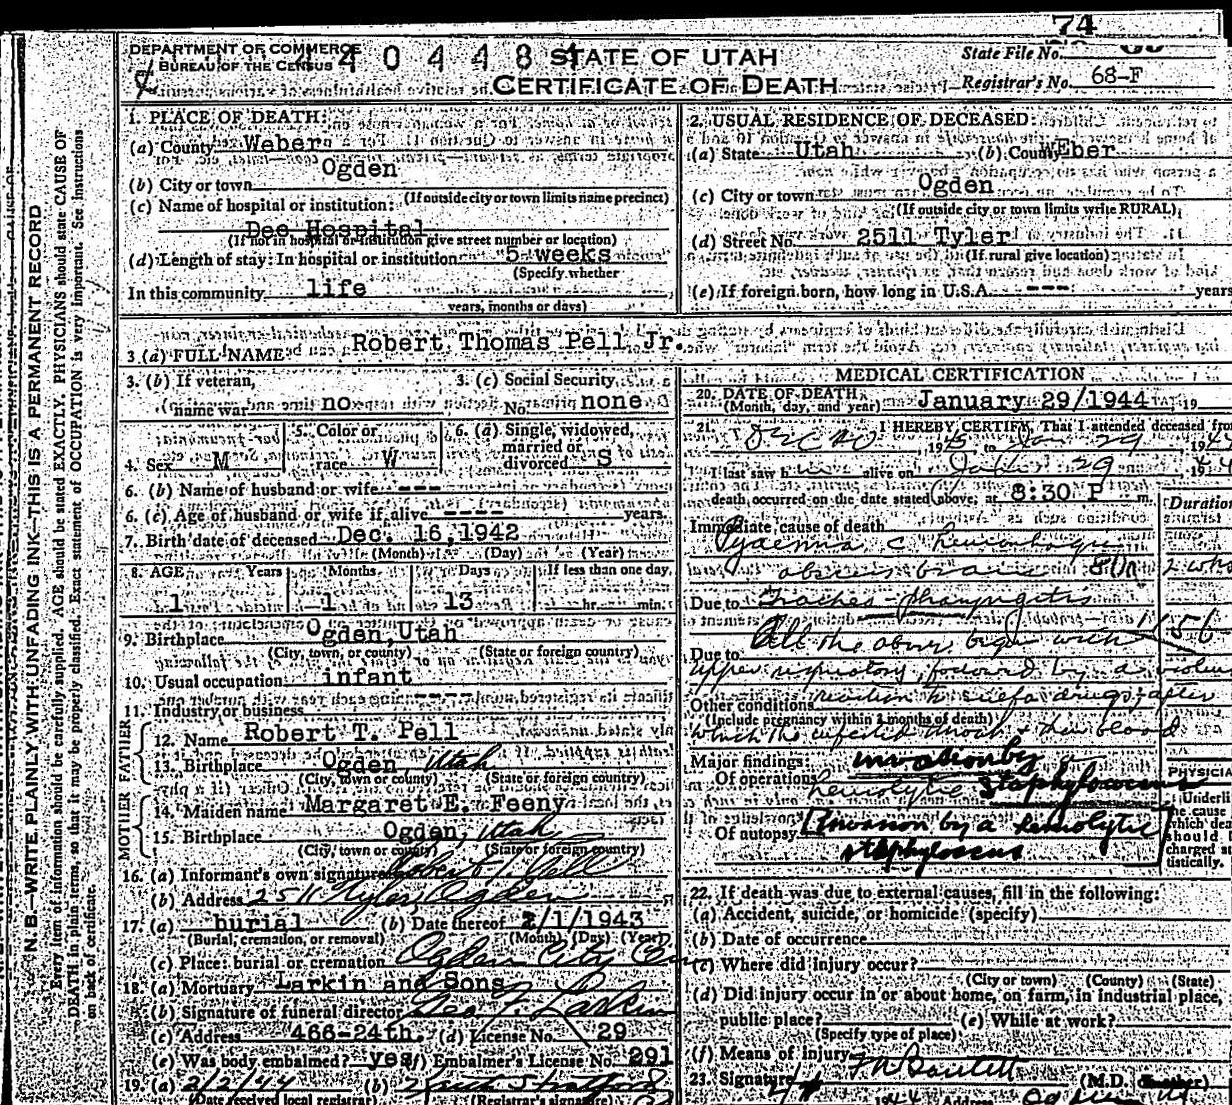 74
DEPARTMENT OF COMMERCE
BUREAU OF THE CENSUS
STATE OF UTAH
CERTIFICATE OF DEATH
State File No.
Registrar's No. 68-F
1. PLACE OF DEATH:
(a) County Weber
(b) City or town Ogden
(If outside city or town limits name precinct)
(c) Name of hospital or institution:
Dee Hospital
(If not in hospital or institution give street number or location)
(d) Length of stay: In hospital or institution 5 weeks
(Specify whether
In this community life
years, months or days)
2. USUAL RESIDENCE OF DECEASED:
(a) State Utah (b) County WEber
(c) City or town Ogden
(If outside city or town limits write RURAL)
(d) Street No. 2511 Tyler
(If rural give location)
(e) If foreign born, how long in U.S.A. --- years
3. (a) FULL NAME Robert Thomas Pell Jr.
3. (b) If veteran,
name war no
3. (c) Social Security
No. none
4. Sex M
5. Color or
race W
6. (a) Single, widowed,
married or
divorced S
6. (b) Name of husband or wife ---
6. (c) Age of husband or wife if alive ---- years
7. Birth date of deceased Dec. 16, 1942
(Month) (Day) (Year)
8. AGE Years Months Days If less than one day,
1 1 13 hr. min.
9. Birthplace Ogden, Utah
(City, town, or county) (State or foreign country)
10. Usual occupation infant
11. Industry or business ----
FATHER
12. Name Robert T. Pell
13. Birthplace Ogden, Utah
(City, town or county) (State or foreign country)
MOTHER
14. Maiden name Margaret E. Feeny
15. Birthplace Ogden, Utah
(City, town or county) (State or foreign country)
16. (a) Informant's own signature Robert T. Pell
(b) Address 2511 Tyler, Ogden
17. (a) burial (b) Date thereof 2/1/1943
(Burial, cremation, or removal) (Month) (Day) (Year)
(c) Place: burial or cremation Ogden City Cem
18. (a) Mortuary Larkin and Sons
(b) Signature of funeral director Geo F. Larkin
(c) Address 466-24th. (d) License No. 29
(e) Was body embalmed? yes (f) Embalmer's License No. 291
19. (a) 2/2/44 (b)
(Date received local registrar) (Registrar's signature)
MEDICAL CERTIFICATION
20. DATE OF DEATH:
(Month, day, and year) January 29/1944, 19
21. I HEREBY CERTIFY, That I attended deceased from
to Jan 29
I last saw h alive on 29
death occurred on the date stated above, at 8:30 P m.
Duration
Immediate cause of death
Pyaemia c hemorrhagic
abscess brain
Due to Tracheo-pharyngitis
Due to All the above began with
upper respiratory, followed by a violent
Other conditions reaction to sulfa drugs, after
(Include pregnancy within 3 months of death)
which the infected throat & then blood
Major findings: invasion by
Of operations hemolytic Staphylococcus
Of autopsy Invasion by a hemolytic
staphylococcus
PHYSICIAN
Underli
the cause
which dea
should
charged sta
tistically.
22. If death was due to external causes, fill in the following:
(a) Accident, suicide, or homicide (specify)
(b) Date of occurrence
(c) Where did injury occur?
(City or town) (County) (State)
(d) Did injury occur in or about home, on farm, in industrial place,
public place? (e) While at work?
(Specify type of place)
(f) Means of injury
23. Signature Bartlett (M.D.
Address
N. B.—WRITE PLAINLY WITH UNFADING INK—THIS IS A PERMANENT RECORD
Every item of information should be carefully supplied. AGE should be stated EXACTLY. PHYSICIANS should state CAUSE OF
DEATH in plain terms, so that it may be properly classified. Exact statement of OCCUPATION is very important. See instructions
on back of certificate.